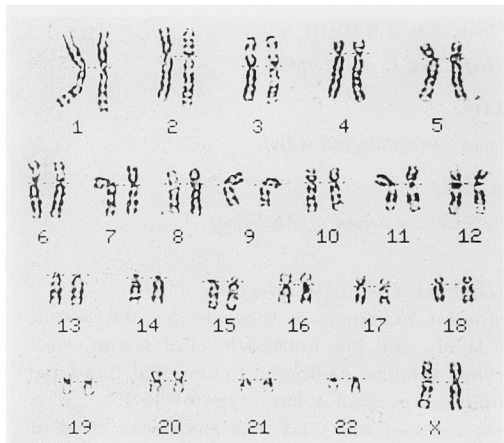 1 2 3 4 5
6 7 8 9 10 11 12
13 14 15 16 17 18
19 20 21 22 X